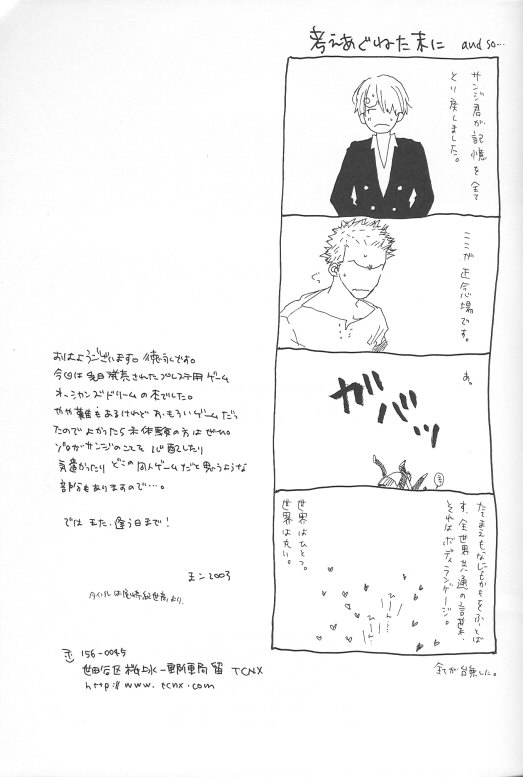 考えあぐねた末に and so…
サンジ君が記憶を全て
とり戻しました。
ここが正念場です。
ぐっ
あ。
ガバッ
たてまえもなにもかもをふっとば
す、全世界共通の言葉、
それはボディランゲージ。
世界はひとつ。
世界は丸い。
全てが台無しだ。
おはようございます。
今回は先日発売されたプレステ用ゲーム
オーシャンズドリームの本でした。
やや難もあるけれどおもろいゲームだっ
たのでよかったら未体験の方はぜひ。
ゾロがサンジのことを心配したり
気遣かったりどこの同人ゲームだと思うような
部分もありますので…。
では また、逢う日まで!
2003
タイトルは尾崎紀世彦より。
〒156-0045
世田谷区桜上水一郵便局留 TCNX
http://www.tcnx.com